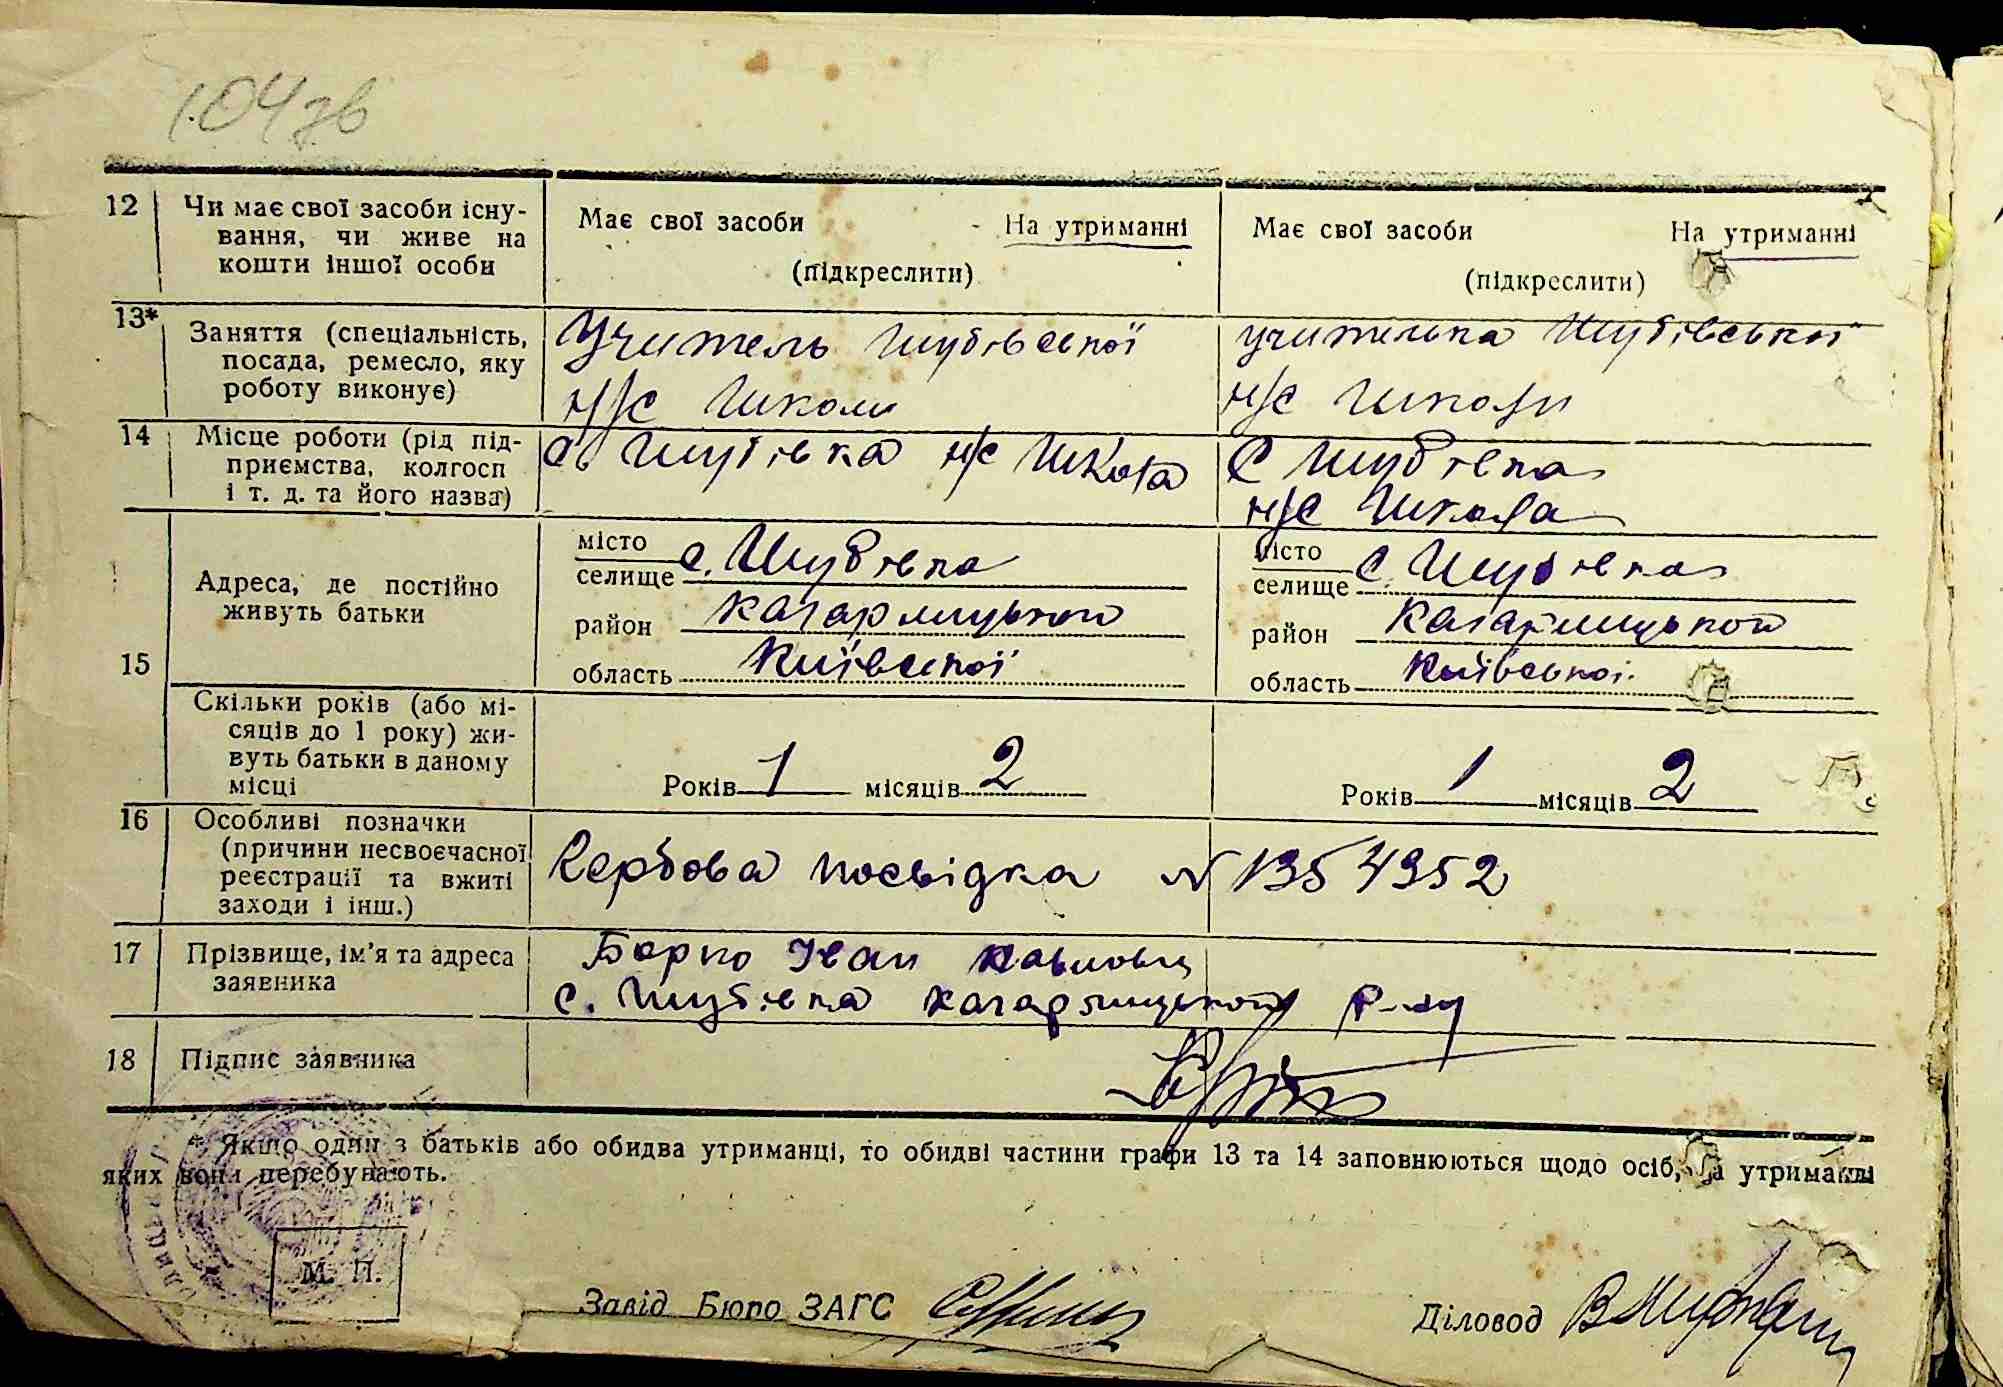 104 зв
12 Чи має свої засоби існу-
вання, чи живе на
кошти іншої особи
Має свої засоби На утриманні
(підкреслити)
Має свої засоби На утриманні
(підкреслити)
13* Заняття (спеціальність,
посада, ремесло, яку
роботу виконує)
Учитель Шубівської
н/с школи
учителька Шубівської
н/с школи
14 Місце роботи (рід під-
приємства, колгосп
і т. д. та його назва)
Шубівка н/с школа
С Шубівка
н/с школа
15 Адреса, де постійно
живуть батьки
місто
селище с. Шубівка
район Кагарлицького
область Київської
місто
селище с. Шубівка
район Кагарлицького
область Київської
Скільки років (або мі-
сяців до 1 року) жи-
вуть батьки в даному
місці
Років 1 місяців 2
Років 1 місяців 2
16 Особливі позначки
(причини несвоєчасної
реєстрації та вжиті
заходи і інш.)
Гербова посвідка N 1354352
17 Прізвище, ім'я та адреса
заявника
Борко Іван Павлович
с. Шубівка Кагарлицького р-ну
18 Підпис заявника
* Якщо один з батьків або обидва утриманці, то обидві частини графи 13 та 14 заповнюються щодо осіб, на утриманні
яких вони перебувають.
М. П.
Завід Бюро ЗАГС
Діловод